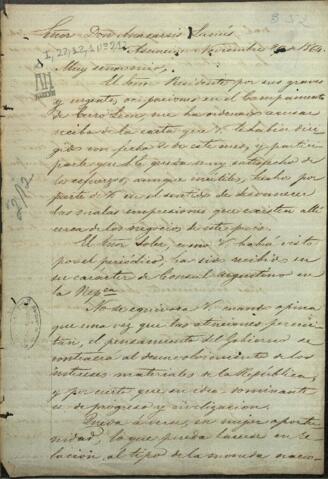 Señor Don
Asuncion Noviembre 1864.
Muy señor mio,
El Señor Presidente por sus graves
y urgentes ocupaciones en el Campamento
de Cerro Leon, me ha ordenado acusar
recibo de la carta que V. le habia diri
gido con fecha 2 de este mes, y partici
parle que le queda muy satisfecho de
los esfuerzos, aunque inutiles, hechos por
parte de V. en el sentido de desvanecer
las malas impresiones que existen allí
acerca de los negocios de este pais.
El Señor Soler, como V. habrá visto
por el periódico, ha sido recibido en
su carácter de Consul argentino en
la
No se equivoca V. cuando opina
que una vez que las atenciones permi
tan, el pensamiento del Gobierno se
contraera al desenvolvimiento de los
intereses materiales de la República,
y por cierto que su idea dominante
es de progreso y civilizacion.
en mejor oportu
nidad, lo que pueda hacerse en re
lacion al tipo de la moneda nacio